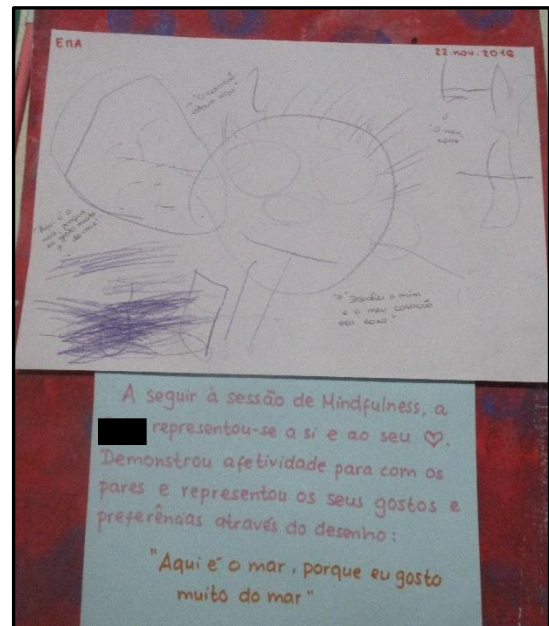 EMA
22.nov.2016
"O coração
estava aqui"
"O meu
nome"
"Aqui é o
mar, porque
eu gosto muito
do mar"
"Desenhei a mim
e o meu coração
A seguir à sessão de Mindfulness, a
representou-se a si e ao seu ♡.
Demonstrou afetividade para com os
pares e representou os seus gostos e
preferências através do desenho:
"Aqui é o mar, porque eu gosto
muito do mar"